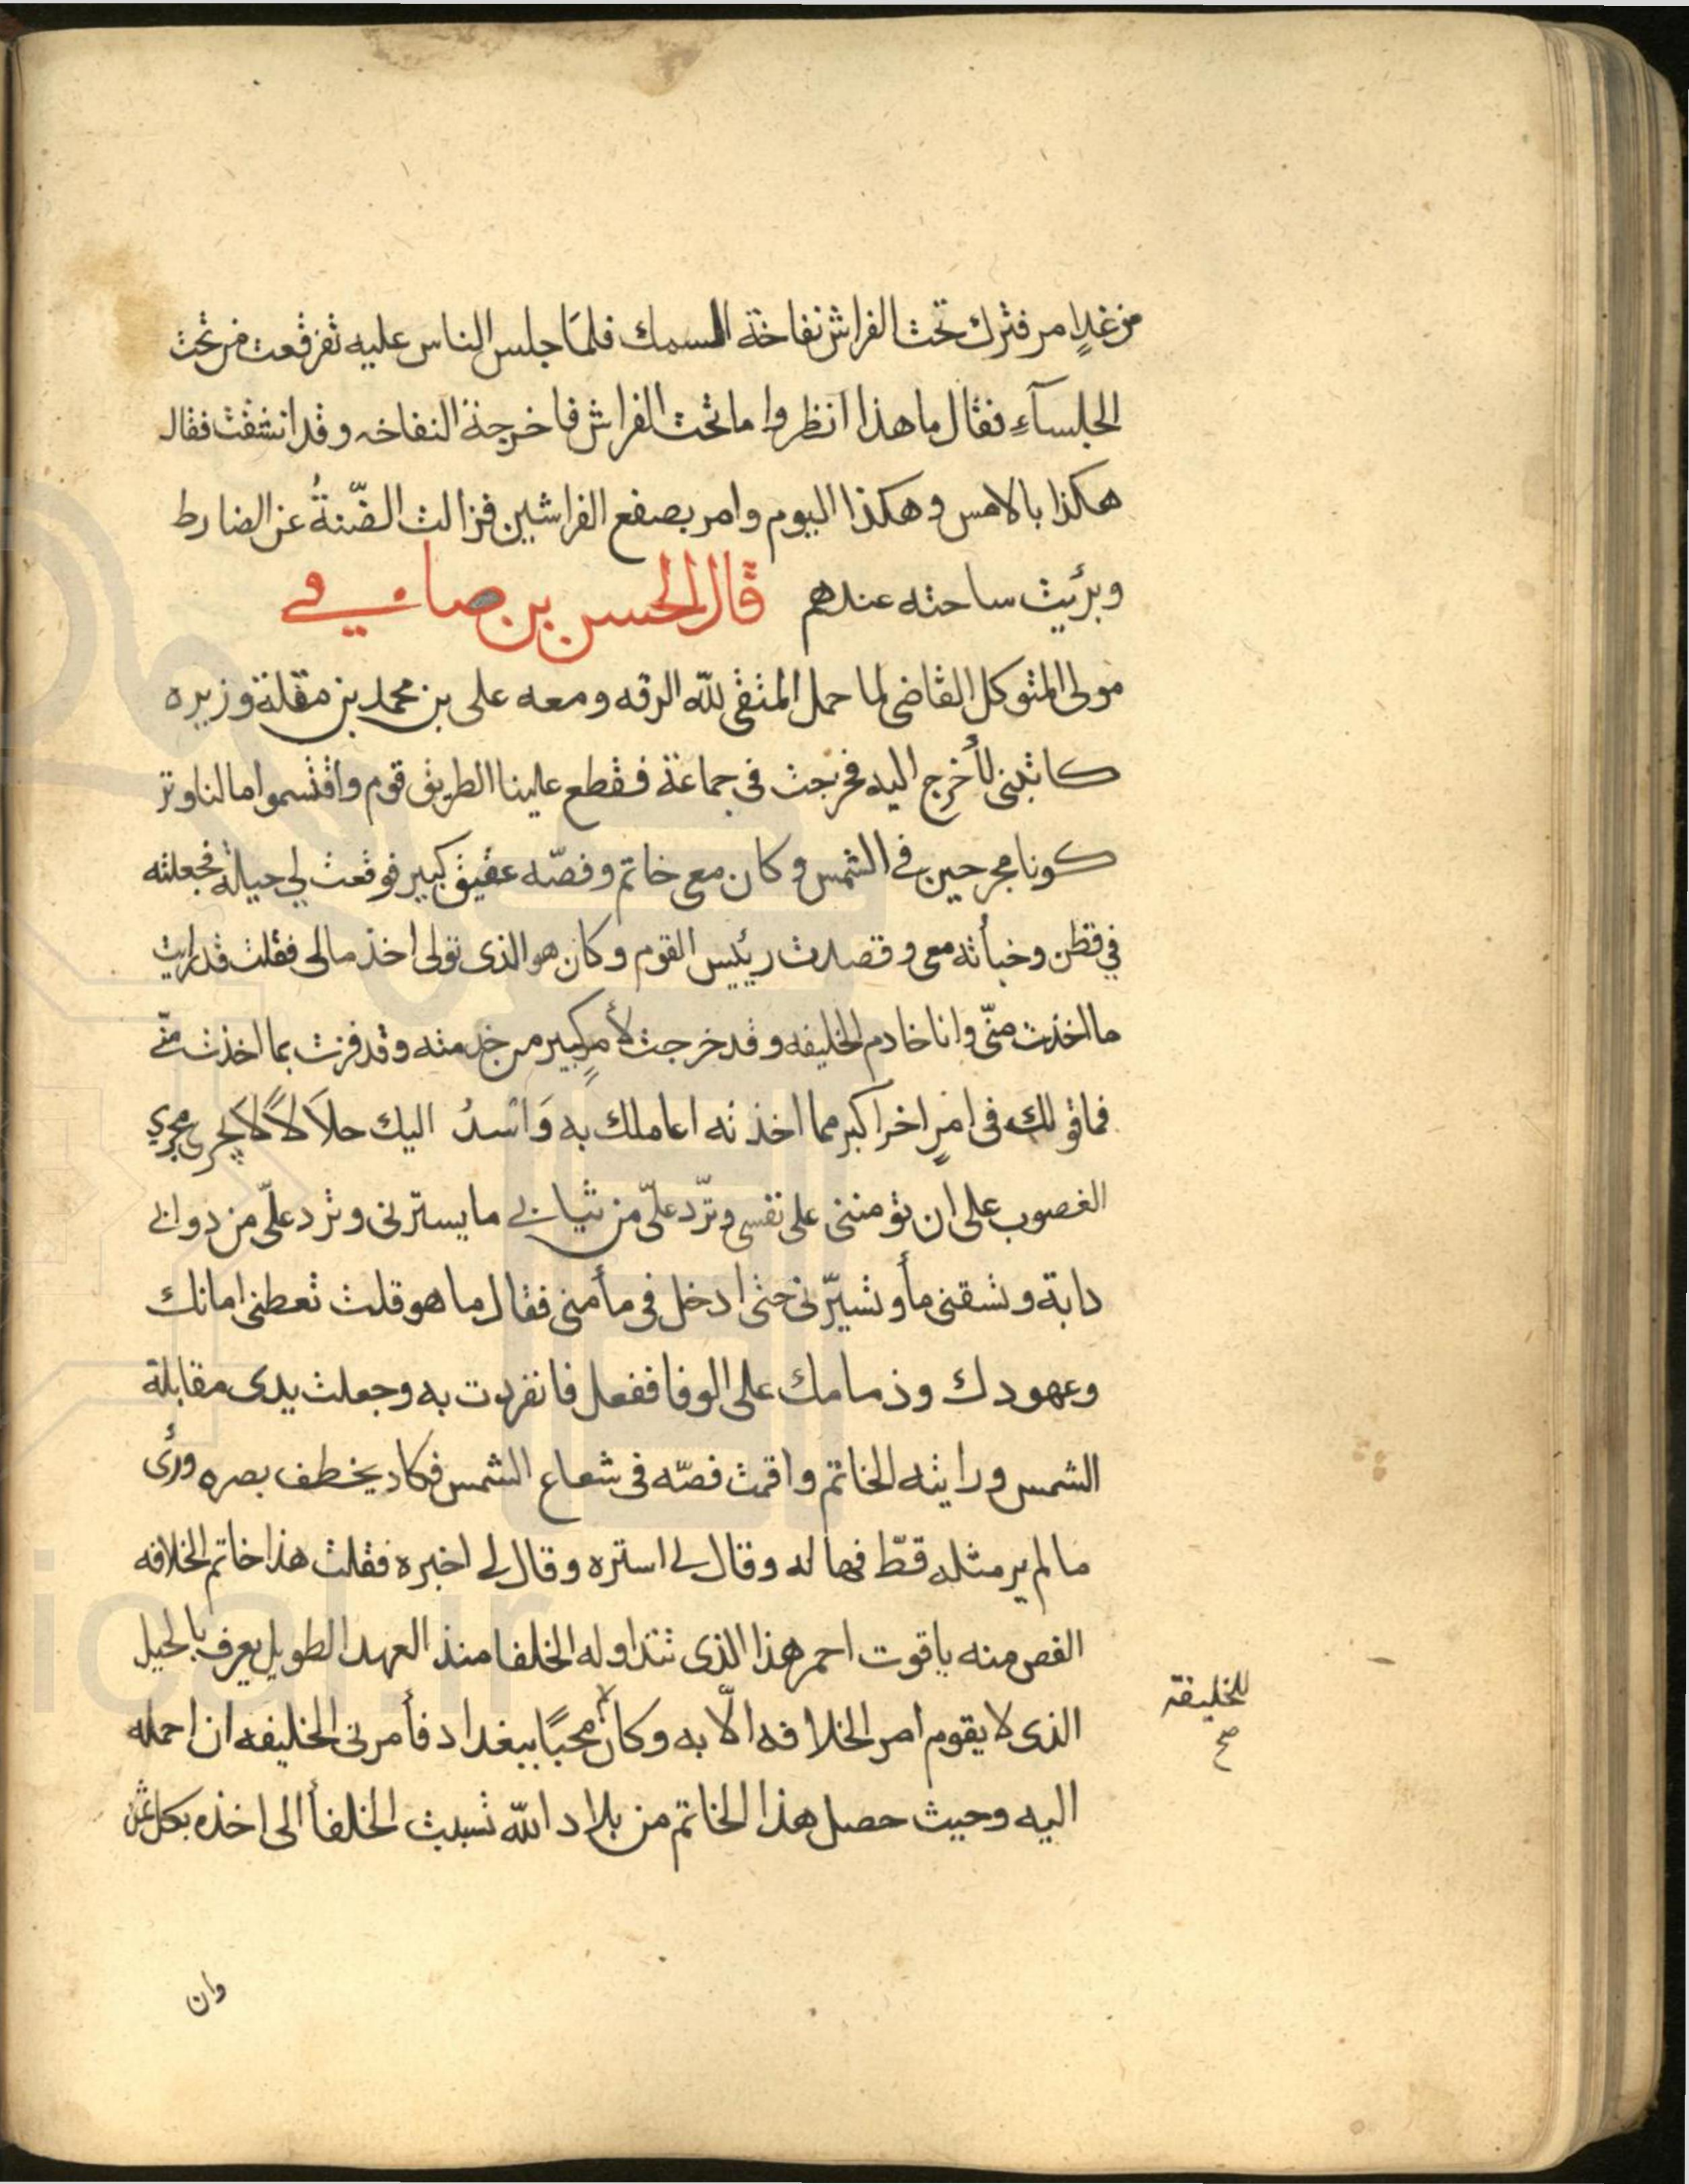 من غدٍ امر فترك تحت الفراش نفاخة السمك فلمّا جلس الناس عليه تفرقعت من تحت
الجلساء فقال ما هذا انظروا ما تحت الفراش فاخرجة النفاخه وقد انشقت فقال
هكذا بالامس وهكذا اليوم وامر بصفع الفراشين فزالت الضّنةُ عن الضارط
وبرئيت ساحته عندهم قال الحسن بن صافي
مولى المتوكل القاضي لما حمل المتقي لله الرقه ومعه علي بن محمد بن مقلة وزيره
كاتبنى لأخرج اليه فخرجت في جماعة فقطع علينا الطريق قوم واقتسموا مالنا وتر
كونا مجرحين في الشمس وكان معي خاتم وفصّه عقيق كبير فوقعت لي حيلة فجعلته
في قطن وخبأته معي وقصدت رئيس القوم وكان هو الذي تولى اخذ مالي فقلت قد رايت
ما اخذت منّي وانا خادم الخليفه وقد خرجت لأمرٍ كبير من خدمته وقد فزت بما اخذت منّي
فما قولك في امرٍ اخر اكبر مما اخذته اعاملك به وَاُسدُ اليك حلاَلاً لا يجرى مجرى
الغصوب على ان تؤمننى على نفسي وتردّ علىّ من ثيابي ما يسترنى وترد علىّ من دوابي
دابة وتسقنى مأ وتسيّرنى حتى ادخل في مأمنى فقال ما هو قلت تعطنى امانك
وعهودك وذمامك على الوفا ففعل فانفردت به وجعلت يدي مقابلة
الشمس ورايته الخاتم واقمت فصّه في شعاع الشمس فكاد يخطف بصره ورأى
ما لم ير مثله قطّ فهاله وقال لي استره وقال لي اخبره فقلت هذا خاتم الخلافه
الفص منه ياقوت احمر هذا الذي تتداوله الخلفا منذ العهد الطويل يعرف بالحيل
الذي لا يقوم امر الخلافه الّا به وكان مخبّا ببغداد فأمرنى الخليفه ان احمله
للخليفة
صح
اليه وحيث حصل هذا الخاتم من بلاد الله تسببت الخلفأ الى اخذه بكل ثمن
وان